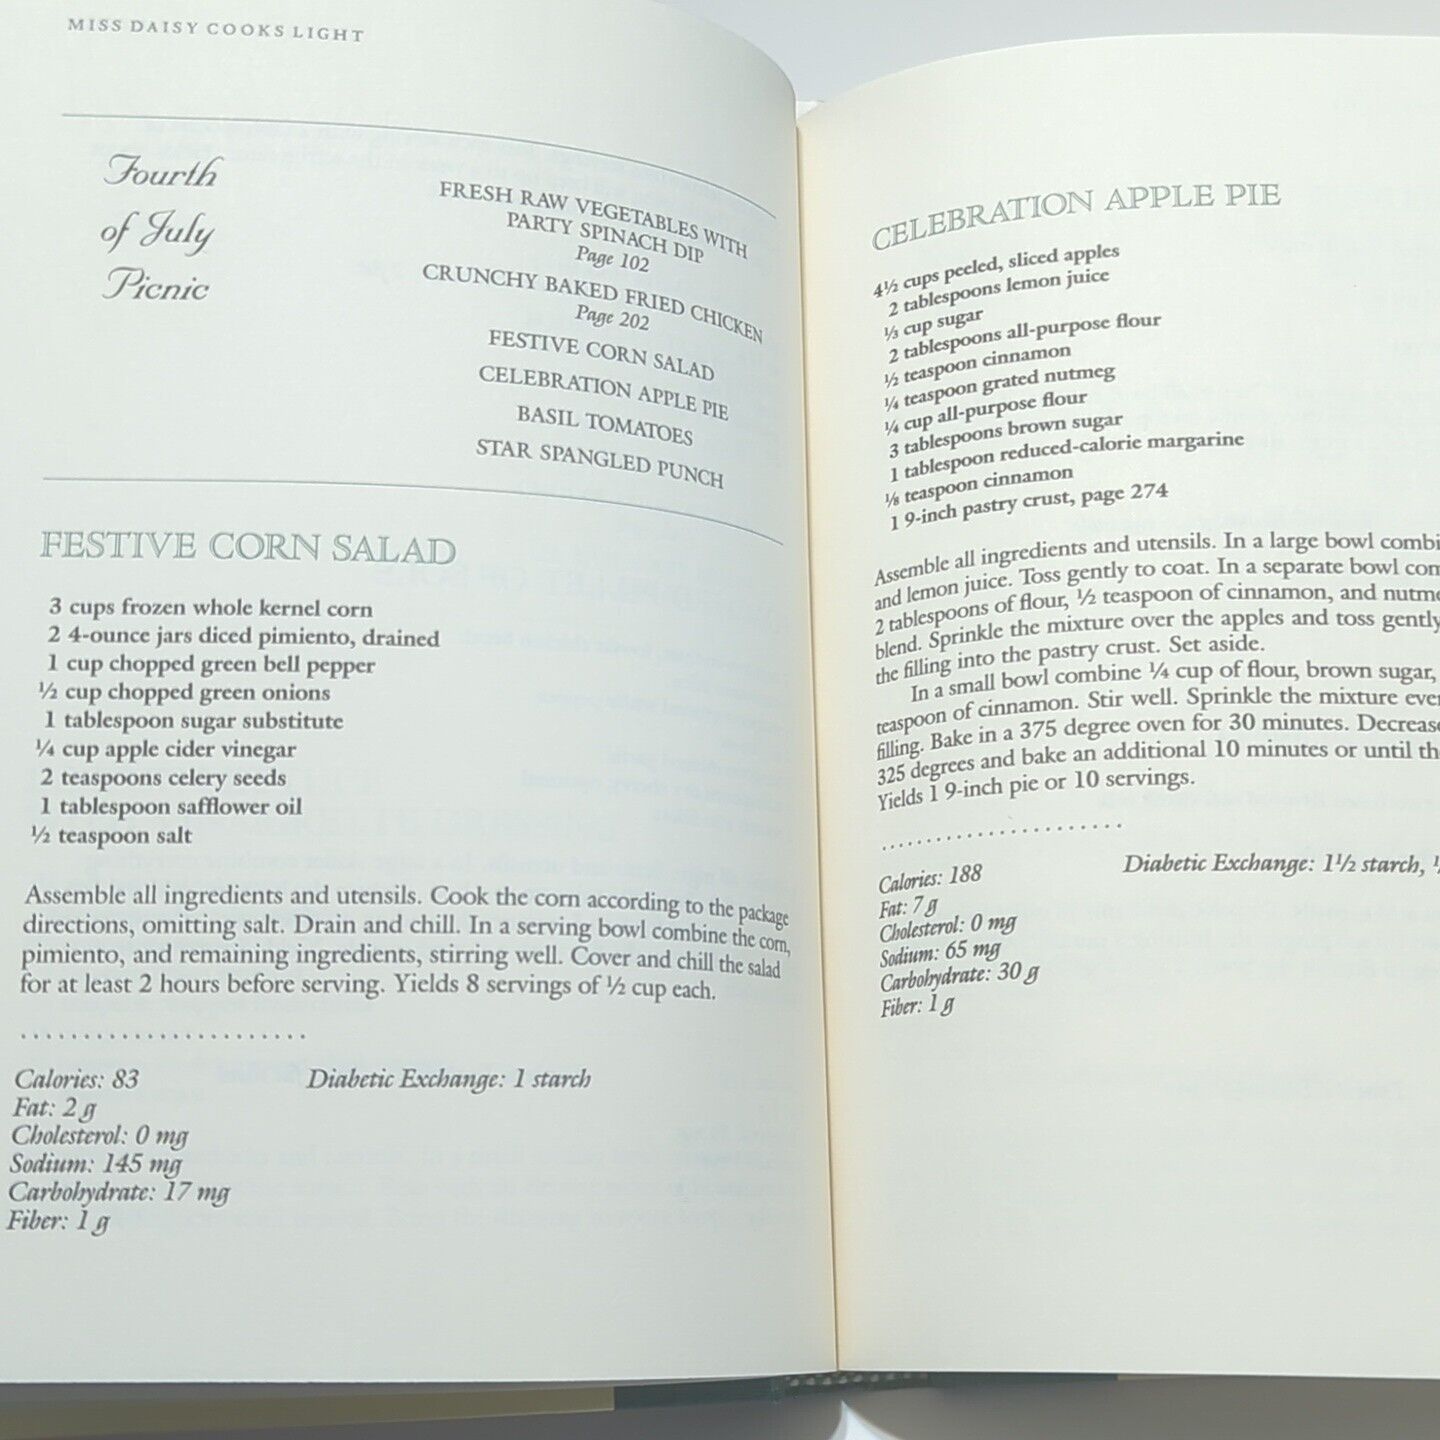 MISS DAISY COOKS LIGHT
Fourth
of July
Picnic
FRESH RAW VEGETABLES WITH
PARTY SPINACH DIP
Page 102
CRUNCHY BAKED FRIED CHICKEN
Page 202
FESTIVE CORN SALAD
CELEBRATION APPLE PIE
BASIL TOMATOES
STAR SPANGLED PUNCH
FESTIVE CORN SALAD
3 cups frozen whole kernel corn
2 4-ounce jars diced pimiento, drained
1 cup chopped green bell pepper
½ cup chopped green onions
1 tablespoon sugar substitute
¼ cup apple cider vinegar
2 teaspoons celery seeds
1 tablespoon safflower oil
½ teaspoon salt
Assemble all ingredients and utensils. Cook the corn according to the package
directions, omitting salt. Drain and chill. In a serving bowl combine the corn,
pimiento, and remaining ingredients, stirring well. Cover and chill the salad
for at least 2 hours before serving. Yields 8 servings of ½ cup each.
Calories: 83 Diabetic Exchange: 1 starch
Fat: 2 g
Cholesterol: 0 mg
Sodium: 145 mg
Carbohydrate: 17 mg
Fiber: 1 g
CELEBRATION APPLE PIE
4½ cups peeled, sliced apples
2 tablespoons lemon juice
⅓ cup sugar
2 tablespoons all-purpose flour
½ teaspoon cinnamon
¼ teaspoon grated nutmeg
¼ cup all-purpose flour
3 tablespoons brown sugar
1 tablespoon reduced-calorie margarine
⅛ teaspoon cinnamon
1 9-inch pastry crust, page 274
Assemble all ingredients and utensils. In a large bowl combi
and lemon juice. Toss gently to coat. In a separate bowl com
2 tablespoons of flour, ½ teaspoon of cinnamon, and nutme
blend. Sprinkle the mixture over the apples and toss gently
the filling into the pastry crust. Set aside.
In a small bowl combine ¼ cup of flour, brown sugar,
teaspoon of cinnamon. Stir well. Sprinkle the mixture ever
filling. Bake in a 375 degree oven for 30 minutes. Decrease
325 degrees and bake an additional 10 minutes or until the
Yields 1 9-inch pie or 10 servings.
Calories: 188 Diabetic Exchange: 1½ starch,
Fat: 7 g
Cholesterol: 0 mg
Sodium: 65 mg
Carbohydrate: 30 g
Fiber: 1 g